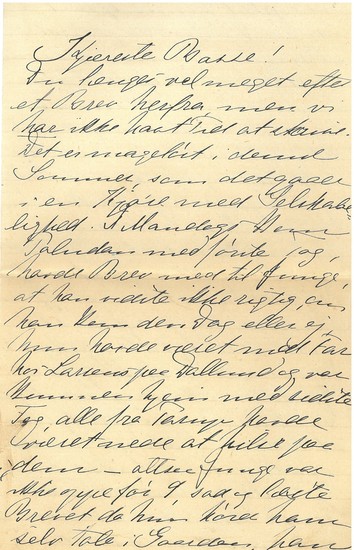 Kjæreste Basse!
Du længes vel meget efter
et Brev herfra men vi
har ikke haft Tid at skrive.
Det er mageløst i denne
Sommer som det gaaer
i en Kjøre med Selskabe-
lighed. I Mandags kom
Paludan med første Tog,
havde Brev med til Junge,
at han vidste ikke rigtig, om
han kom den Dag eller ej,
hun havde været med Far
hos Larsens paa Dallund og var
kommen hjem med sidste
Tog, alle fra Tarup havde
været nede at hilse paa
dem – altsaa Junge var
ikke oppe før 9, sad og læste
Brevet da hun hørte ham
selv tale i Gaarden, han